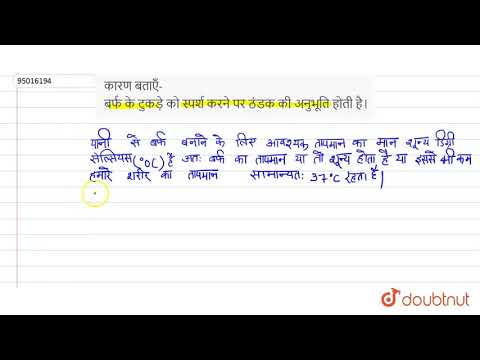 95016194
कारण बताएँ-
बर्फ के टुकड़े को स्पर्श करने पर ठंडक की अनुभूति होती है।
यानी से बर्फ बनाने के लिए आवश्यक तापमान का मान शून्य डिग्री
सेल्सियस (०C) है अतः बर्फ का तापमान या तो शून्य होता है या इससे भी कम
हमारे शरीर का तापमान सामान्यतः 37°C रहता है।
doubtnut